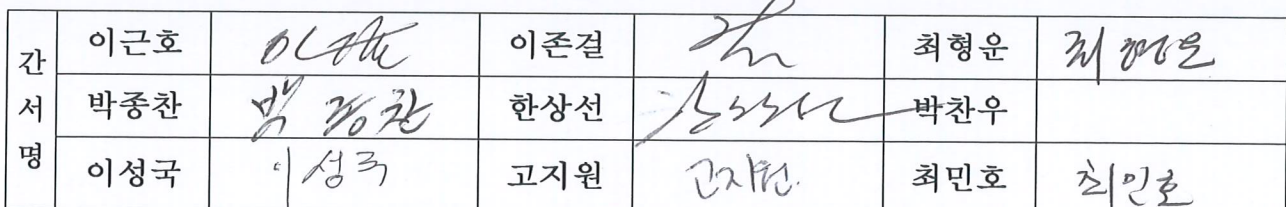 간서명
이근호 이존걸 최형운 최형운
박종찬 박종찬 한상선 박찬우
이성국 이성국 고지원 고지원 최민호 최민호